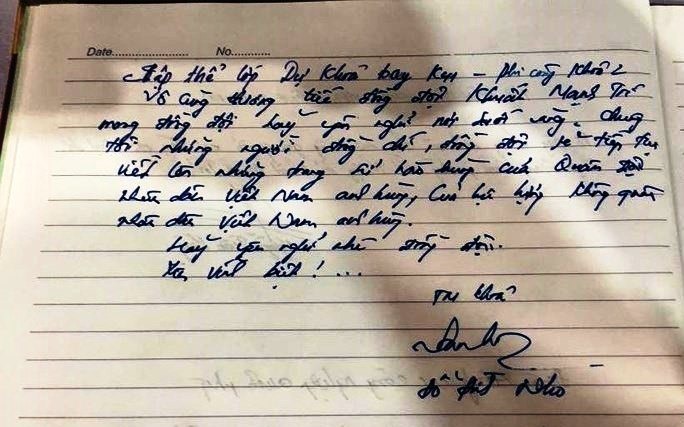 Date............ No............
Tập thể lớp Dự khoá bay K44 - phi công khoá 2
Vô cùng thương tiếc đồng đội Khuất Mạnh Trí
mong đồng đội hãy yên nghỉ nơi suối vàng. Chúng
tôi những người đồng chí, đồng đội sẽ tiếp tục
viết lên những trang sử hào hùng của Quân đội
nhân dân Việt Nam anh hùng, của lực lượng không quân
nhân dân Việt Nam anh hùng.
Hãy yên nghỉ nhé đồng đội.
Vĩnh biệt! ...
TM khoá
Nho